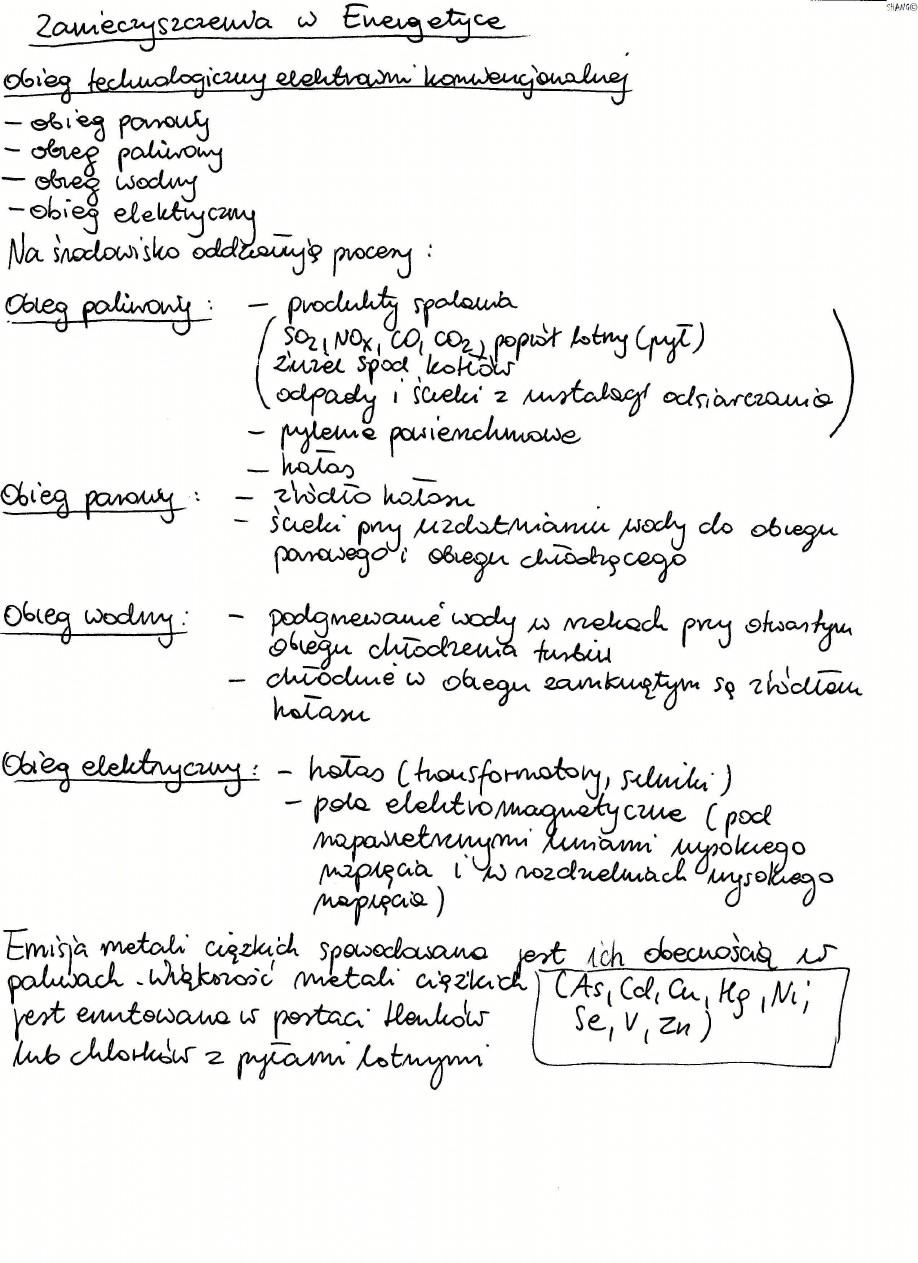 SHANG©
Zanieczyszczenia w Energetyce
Obieg technologiczny elektrowni konwencjonalnej
- obieg parowy
- obieg paliwowy
- obieg wodny
- obieg elektryczny
Na środowisko oddziałują procesy :
Obieg paliwowy : - produkty spalania
(SO2, NOx, CO, CO2, popiół lotny (pył)
żużel spod kotłów
odpady i ścieki z instalacji odsiarczania)
- pylenie powierzchniowe
- hałas
Obieg parowy : - źródło hałasu
- ścieki przy uzdatnianiu wody do obiegu
parowego i obiegu chłodzącego
Obieg wodny : - podgrzewanie wody w rzekach przy otwartym
obiegu chłodzenia turbin
- chłodnie w obiegu zamkniętym są źródłem
hałasu
Obieg elektryczny : - hałas (transformatory, silniki)
- pola elektromagnetyczne (pod
napowietrznymi liniami wysokiego
napięcia i w rozdzielniach wysokiego
napięcia)
Emisja metali ciężkich spowodowana jest ich obecnością w
paliwach. Większość metali ciężkich (As, Cd, Cu, Hg, Ni;
jest emitowana w postaci tlenków Se, V, Zn)
lub chlorków z pyłami lotnymi